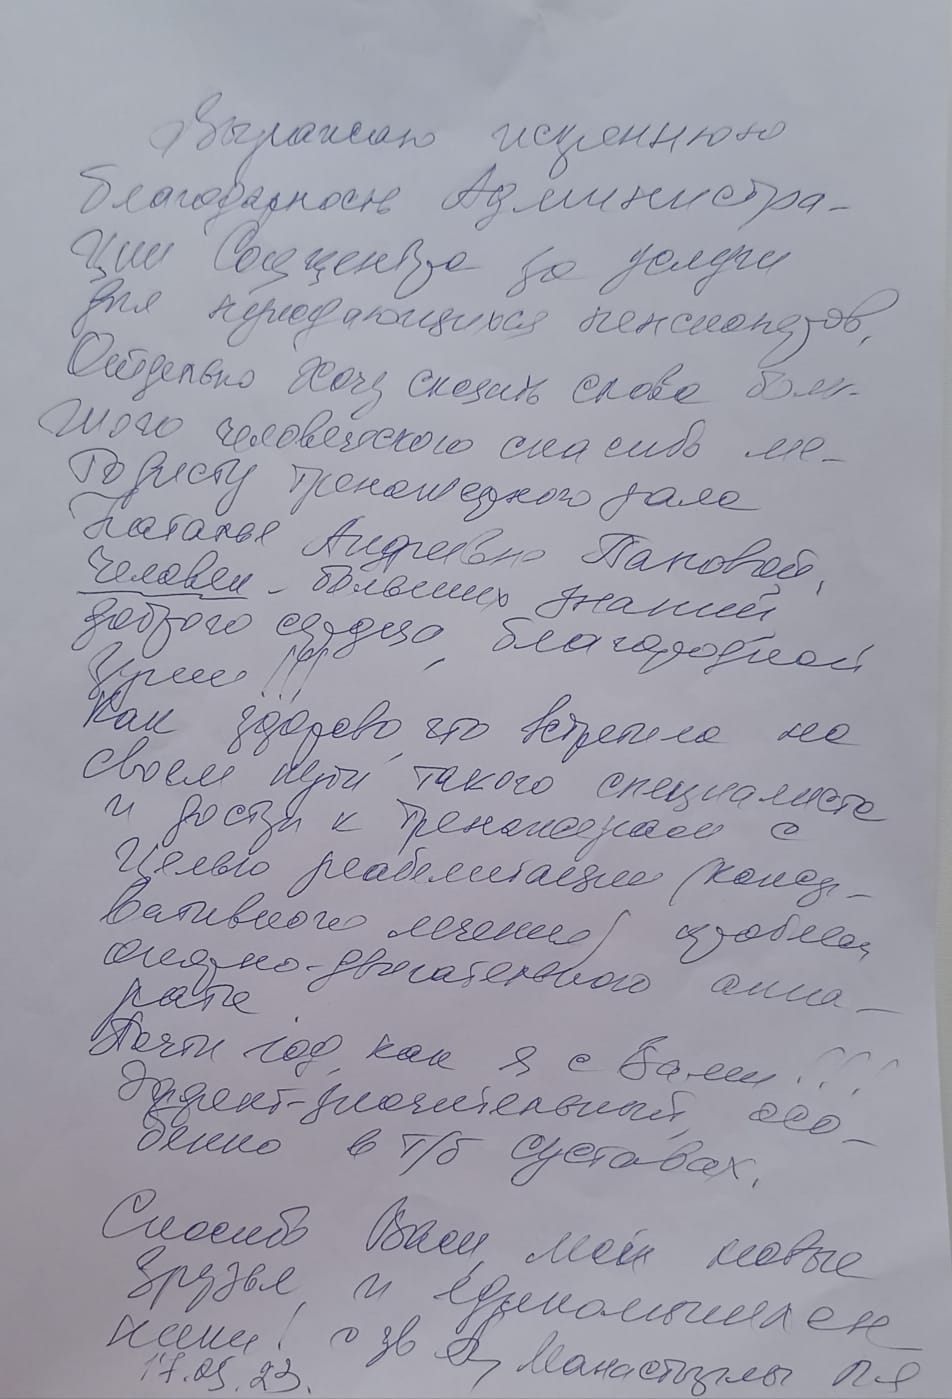 Выражаю искреннюю
благодарность Администра-
ции Соццентра за услуги
для нуждающихся пенсионеров.
Отдельно хочу сказать слова боль-
шого человеческого спасибо ме-
тодисту тренажерного зала
Наталье Андреевне Пановой,
Человек - больших знаний
доброго сердца, благородной
души !!!
Как здорово, что встретила на
своем пути такого специалиста
и доступ к тренажерам с
целью реабилитации (консер-
вативного лечения) проблем
опорно-двигательного аппа-
рата
Почти год, как я с Вами!!!
Эффект-значительный, осо-
бенно в т/б суставах.
Спасибо Вам, мои новые
друзья, и единомышлен
ники!
17.05.23.